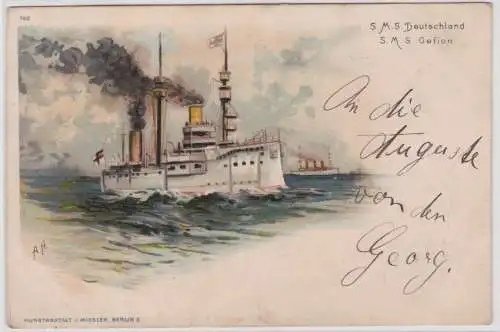 762
S.M.S. Deutschland
S.M.S. Gefion
An die
Auguste
von den
Georg.
KUNSTANSTALT J. MIESLER, BERLIN S.